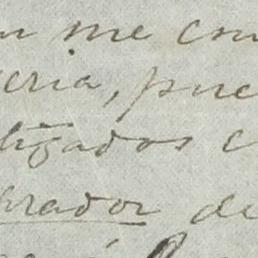 me con
eria, pue
ligados c
brador de